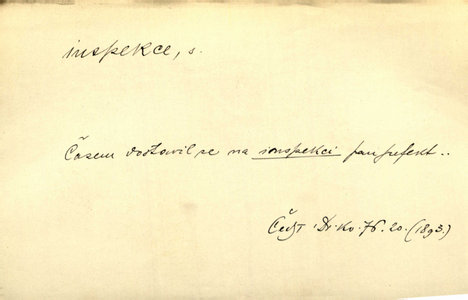 inspekce, s.
Časem dostavil se na inspekci pan prefekt..
Čech Dr. Kv. 76. 20. (1893.)